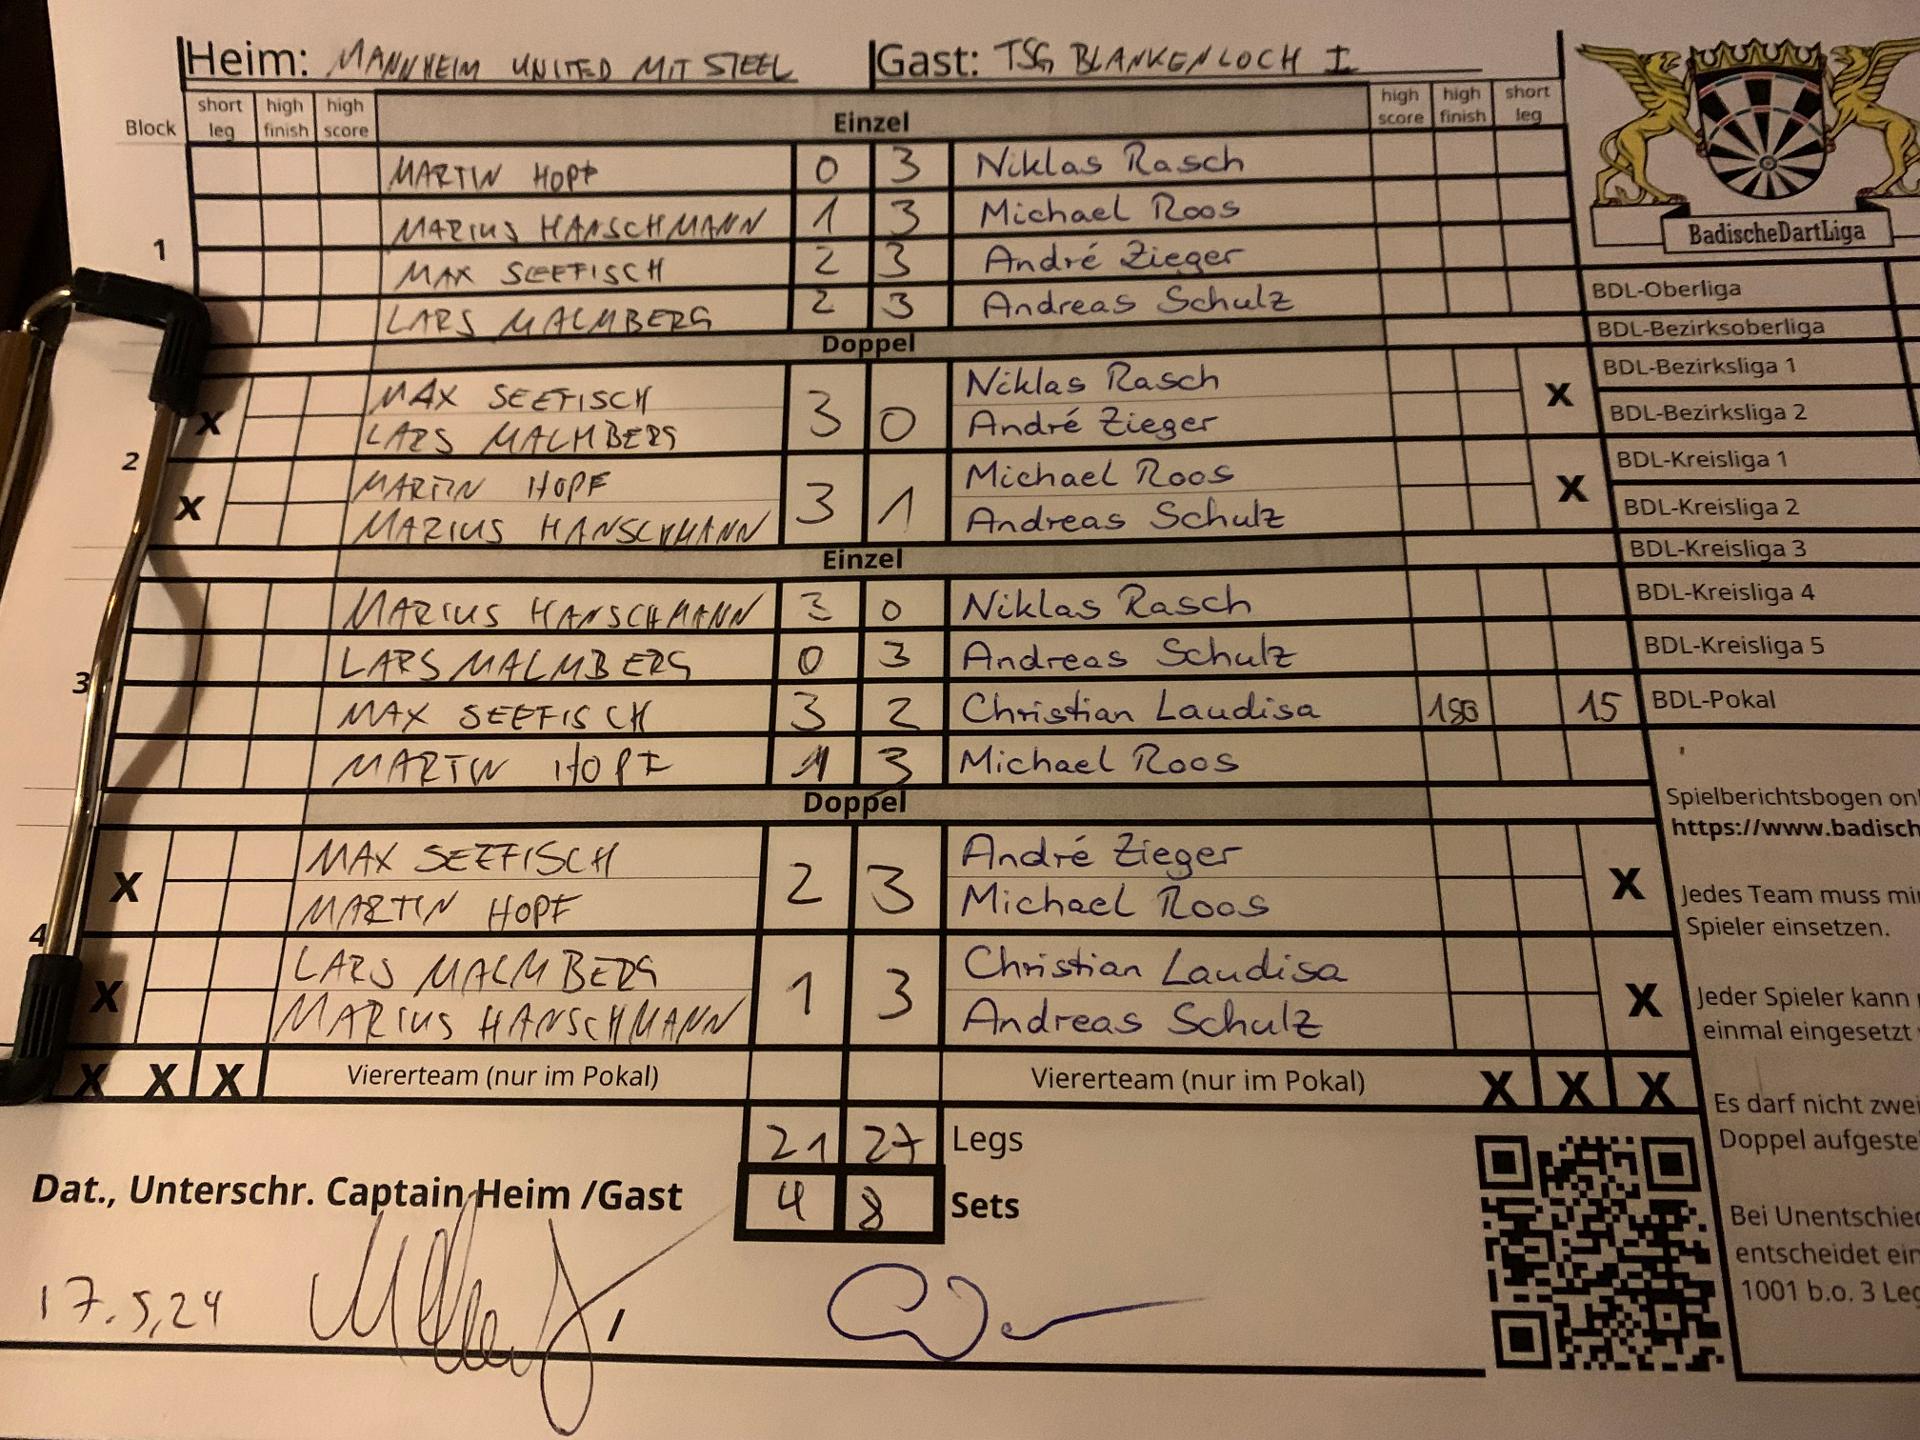 Heim: MANNHEIM UNITED MIT STEEL Gast: TSG BLANKENLOCH I
Block short leg high finish high score Einzel high score high finish short leg
1
MARTIN HOPF 0 3 Niklas Rasch
MARIUS HANSCHMANN 1 3 Michael Roos
MAX SEEFISCH 2 3 André Zieger
LARS MALMBERG 2 3 Andreas Schulz
Doppel
2
X MAX SEEFISCH 3 0 Niklas Rasch X
LARS MALMBERG André Zieger
X MARTIN HOPF 3 1 Michael Roos X
MARIUS HANSCHMANN Andreas Schulz
Einzel
3
MARIUS HANSCHMANN 3 0 Niklas Rasch
LARS MALMBERG 0 3 Andreas Schulz
MAX SEEFISCH 3 2 Christian Laudisa 180 15
MARTIN HOPF 1 3 Michael Roos
Doppel
4
X MAX SEEFISCH 2 3 André Zieger X
MARTIN HOPF Michael Roos
X LARS MALMBERG 1 3 Christian Laudisa X
MARIUS HANSCHMANN Andreas Schulz
X X X Viererteam (nur im Pokal) Viererteam (nur im Pokal) X X X
21 27 Legs
4 8 Sets
Dat., Unterschr. Captain Heim /Gast
17.5,24
BadischeDartLiga
BDL-Oberliga
BDL-Bezirksoberliga
BDL-Bezirksliga 1
BDL-Bezirksliga 2
BDL-Kreisliga 1
BDL-Kreisliga 2
BDL-Kreisliga 3
BDL-Kreisliga 4
BDL-Kreisliga 5
BDL-Pokal
Spielberichtsbogen onl
https://www.badisch
Jedes Team muss min
Spieler einsetzen.
Jeder Spieler kann
einmal eingesetzt
Es darf nicht zwei
Doppel aufgeste
Bei Unentschied
entscheidet ein
1001 b.o. 3 Leg